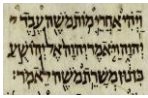 ויהי אחרי מות משה עבד
יהוה ויאמר יהוה אל יהושע
בן נון משרת משה לאמר